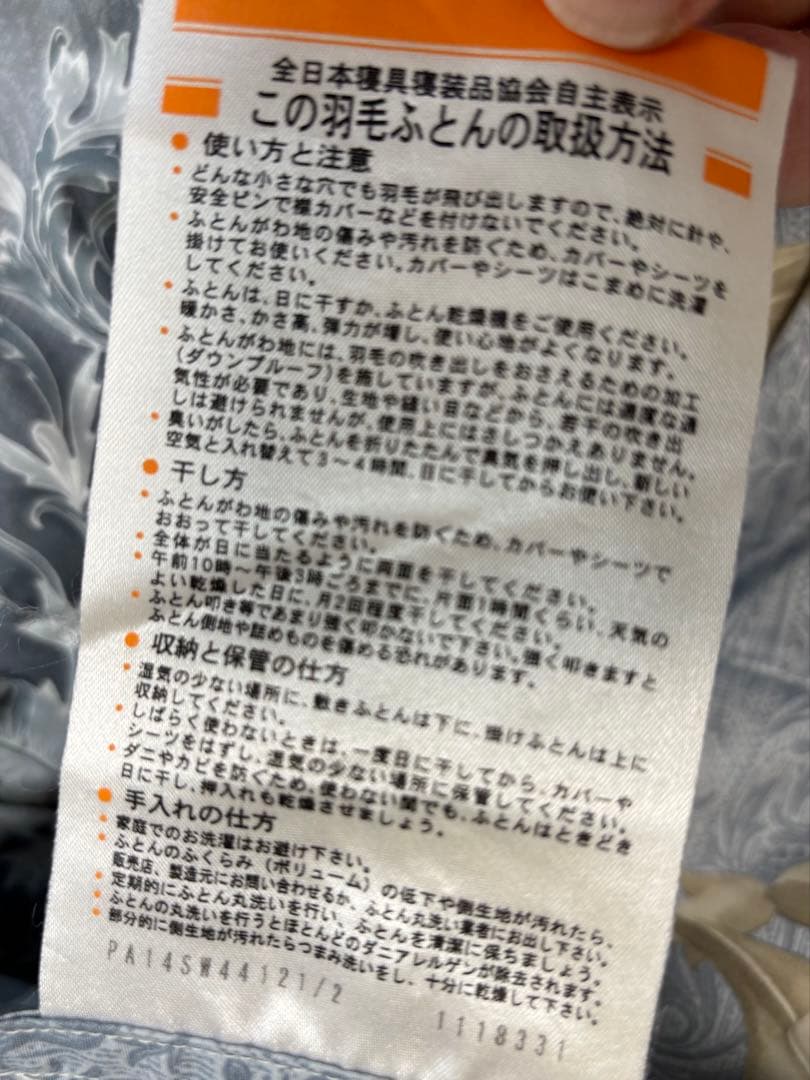 全日本寝具寝装品協会自主表示
この羽毛ふとんの取扱方法
●使い方と注意
・どんな小さな穴でも羽毛が飛び出しますので、絶対に針や、
安全ピンで襟カバーなどを付けないでください。
・ふとんがわ地の傷みや汚れを防ぐため、カバーやシーツを
掛けてお使いください。カバーやシーツはこまめに洗濯
してください。
・ふとんは、日に干すか、ふとん乾燥機をご使用ください。
暖かさ、かさ高、弾力が増し、使い心地がよくなります。
・ふとんがわ地には、羽毛の吹き出しをおさえるための加工
(ダウンプルーフ)を施していますが、ふとんには適度な通
気性が必要であり、生地や縫い目などから、若干の吹き出
しは避けられませんが、使用上にはさしつかえありません。
・臭いがしたら、ふとんを折りたたんで臭気を押し出し、新しい
空気と入れ替えて3〜4時間、日に干してからお使い下さい。
●干し方
・ふとんがわ地の傷みや汚れを防ぐため、カバーやシーツで
おおって干してください。
・全体が日に当たるように両面を干してください。
・午前10時〜午後3時ごろまでに、片面1時間くらい、天気の
よい乾燥した日に、月2回程度干してください。
・ふとん叩き等であまり強く叩かないで下さい。強く叩きますと
ふとん側地や詰めものを傷める恐れがあります。
●収納と保管の仕方
・湿気の少ない場所に、敷きふとんは下に、掛けふとんは上に
収納してください。
・しばらく使わないときは、一度日に干してから、カバーや
シーツをはずし、湿気の少ない場所に保管してください。
・ダニやカビを防ぐため、使わない間でも、ふとんはときどき
日に干し、押入れも乾燥させましょう。
●手入れの仕方
・家庭でのお洗濯はお避け下さい。
・ふとんのふくらみ(ボリューム)の低下や側生地が汚れたら、
販売店、製造元にお問い合わせるか、ふとん丸洗い業者にお出し下さい。
・定期的にふとん丸洗いを行い、ふとんを清潔に保ちましょう。
・ふとんの丸洗いを行うとほとんどのダニアレルゲンが除去されます。
・部分的に側生地が汚れたらつまみ洗いをし、十分に乾燥して下さい。
PA14SW44121/2
1118331